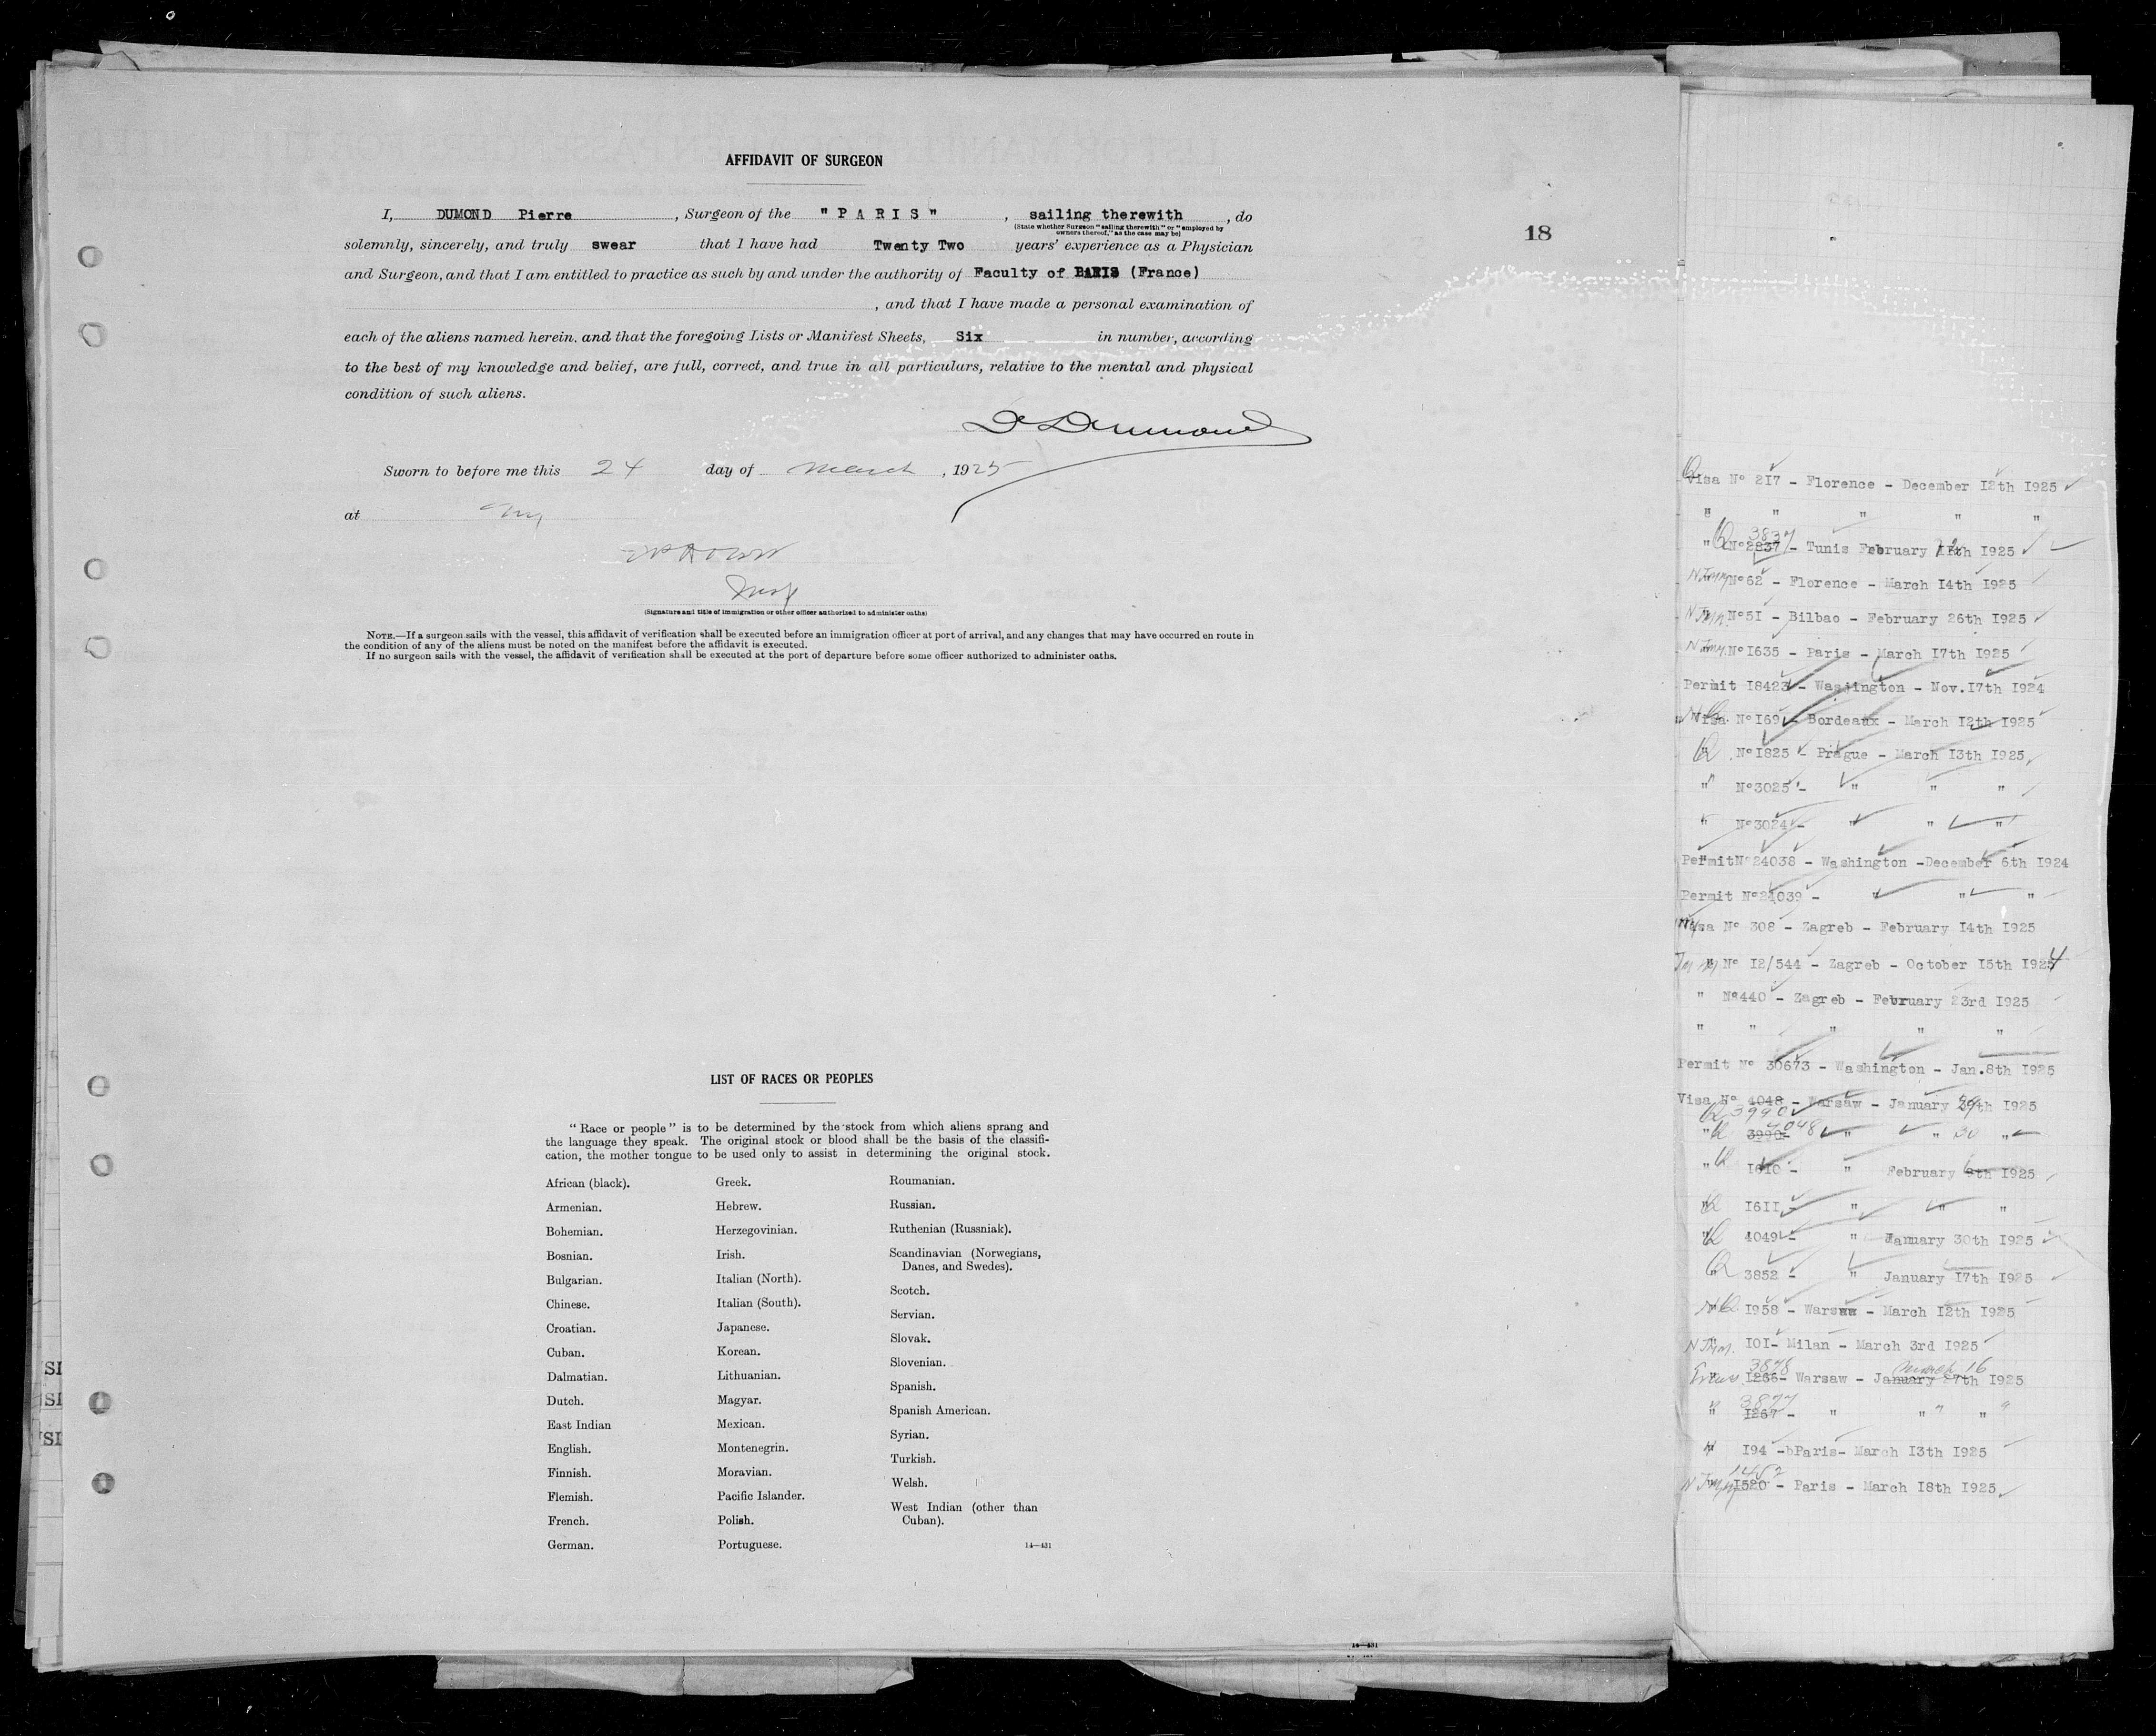 AFFIDAVIT OF SURGEON
I, DUMOND Pierre, Surgeon of the "PARIS", sailing therewith, do
(State whether Surgeon "sailing therewith" or "employed by
owners thereof," as the case may be)
18
solemnly, sincerely, and truly swear that I have had Twenty Two years' experience as a Physician
and Surgeon, and that I am entitled to practice as such by and under the authority of Faculty of PARIS (France)
, and that I have made a personal examination of
each of the aliens named herein, and that the foregoing Lists or Manifest Sheets, Six in number, according
to the best of my knowledge and belief, are full, correct, and true in all particulars, relative to the mental and physical
condition of such aliens.
Sworn to before me this 24 day of March, 1925
at NY
Insp
(Signature and title of immigration or other officer authorized to administer oaths)
NOTE.—If a surgeon sails with the vessel, this affidavit of verification shall be executed before an immigration officer at port of arrival, and any changes that may have occurred en route in
the condition of any of the aliens must be noted on the manifest before the affidavit is executed.
If no surgeon sails with the vessel, the affidavit of verification shall be executed at the port of departure before some officer authorized to administer oaths.
LIST OF RACES OR PEOPLES
"Race or people" is to be determined by the stock from which aliens sprang and
the language they speak. The original stock or blood shall be the basis of the classifi-
cation, the mother tongue to be used only to assist in determining the original stock.
African (black).
Armenian.
Bohemian.
Bosnian.
Bulgarian.
Chinese.
Croatian.
Cuban.
Dalmatian.
Dutch.
East Indian
English.
Finnish.
Flemish.
French.
German.
Greek.
Hebrew.
Herzegovinian.
Irish.
Italian (North).
Italian (South).
Japanese.
Korean.
Lithuanian.
Magyar.
Mexican.
Montenegrin.
Moravian.
Pacific Islander.
Polish.
Portuguese.
Roumanian.
Russian.
Ruthenian (Russniak).
Scandinavian (Norwegians,
Danes, and Swedes).
Scotch.
Servian.
Slovak.
Slovenian.
Spanish.
Spanish American.
Syrian.
Turkish.
Welsh.
West Indian (other than
Cuban).
14—431
14—431
Visa No 217 - Florence - December 12th 1925
" " " " "
" Q No 2837 3837 - Tunis February 12th 1925
No 62 - Florence - March 14th 1925
No 51 - Bilbao - February 26th 1925
No 1635 - Paris - March 17th 1925
Permit 18423 - Wasjington - Nov. 17th 1924
Visa No 169 - Bordeaux - March 12th 1925
Q No 1825 - Prague - March 13th 1925
" No 3025 - " " "
" No 3024 - " " "
Permit No 24038 - Washington -December 6th 1924
Permit No 24039 - " " "
Visa No 308 - Zagreb - February 14th 1925
No 12/544 - Zagreb - October 15th 1924
" No 440 - Zagreb - February 23rd 1925
" " " " "
Permit No 30673 - Washington - Jan. 8th 1925
Visa No 4048 - Warsaw - January 29th 1925
Q 3990
" Q 3990 4048 " " 30 "
" Q 1610 - " February 6th 1925
Q 1611 - " " "
Q 4049 - " January 30th 1925
Q 3852 - " January 17th 1925
NQ 1958 - Warsaw - March 12th 1925
101- Milan - March 3rd 1925
3878 March 16
1266- Warsaw - January 27th 1925
3877
" 1267 - " " " " "
194 -bParis- March 13th 1925
1520 - Paris - March 18th 1925